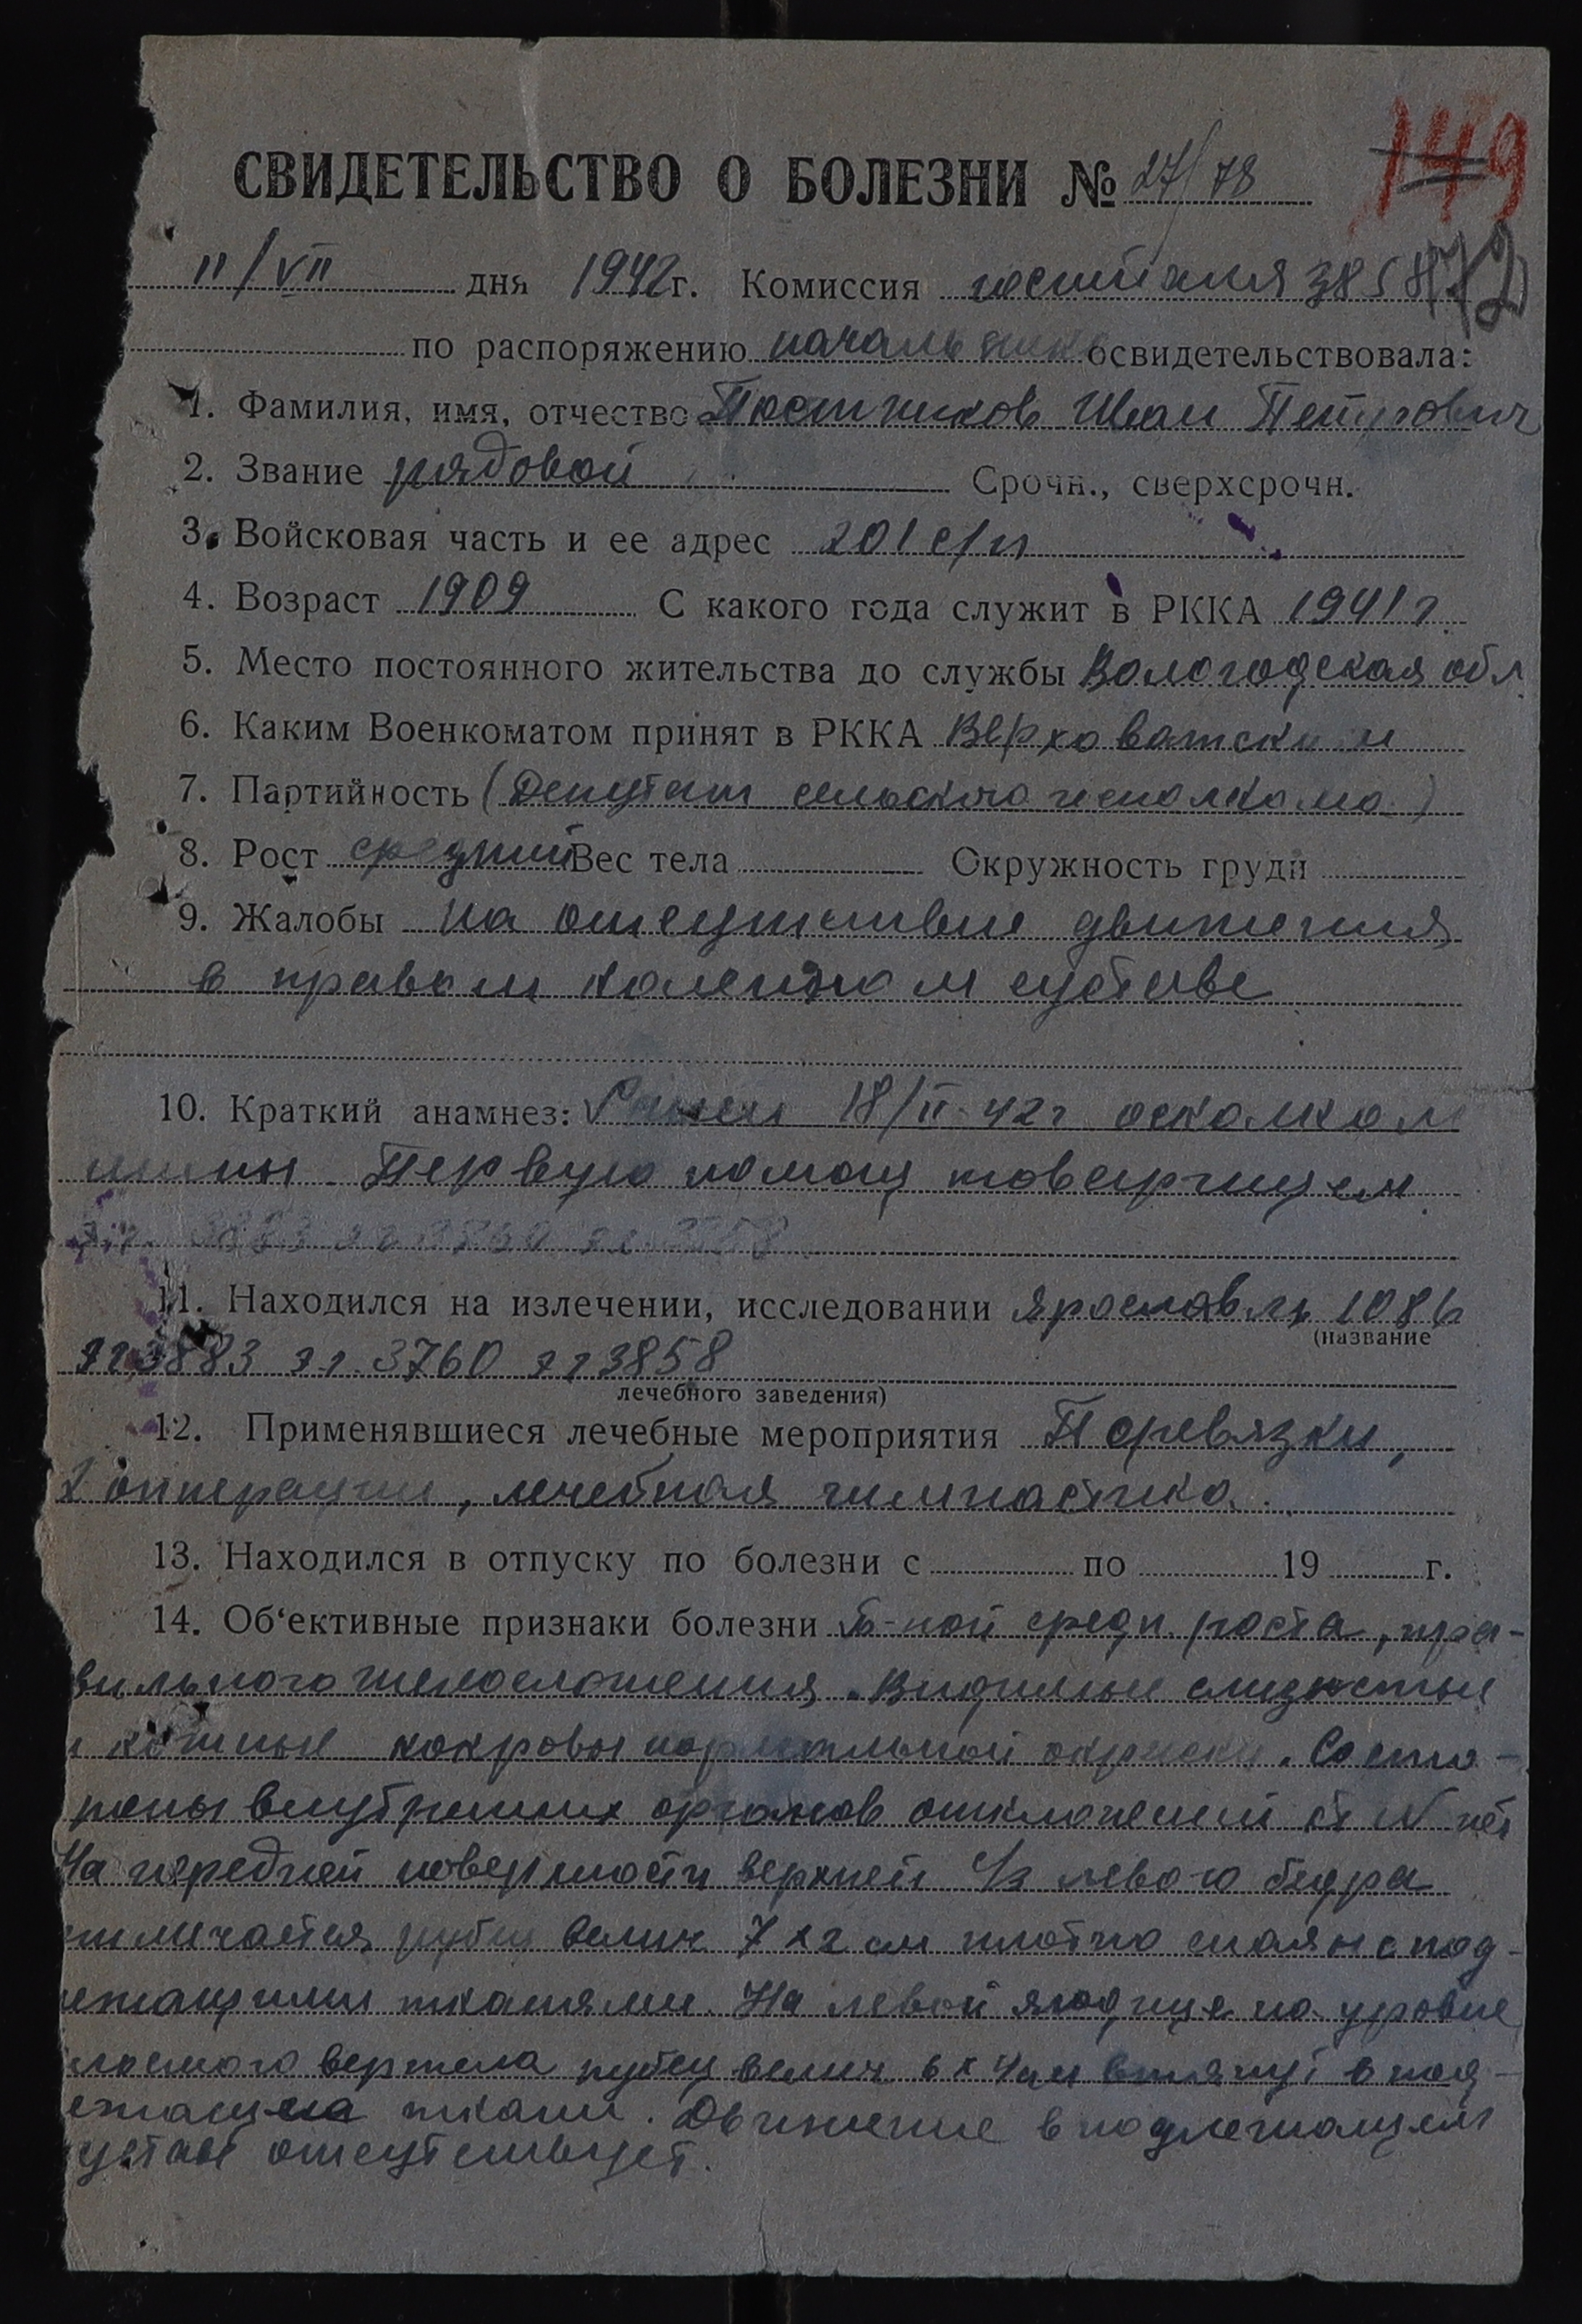 149
СВИДЕТЕЛЬСТВО О БОЛЕЗНИ № 27/78
11/VII дня 1942г. Комиссия госпиталя 3858
72
по распоряжению начальника освидетельствовала:
1. Фамилия, имя, отчество Постников Иван Петрович
2. Звание рядовой Срочн., сверхсрочн.
3. Войсковая часть и ее адрес 201 с/п
4. Возраст 1909 С какого года служит в РККА 1941 г.
5. Место постоянного жительства до службы Вологодская обл.
6. Каким Военкоматом принят в РККА Верховатским
7. Партийность (Депутат сельского исполкома)
8. Рост средний Вес тела Окружность груди
9. Жалобы На отсутствие движения
в правом коленном суставе
10. Краткий анамнез: Ранен 18/II-42г осколком
мины. Первую помощ товарищем
эг. 3883 эг 3760 эг 3858
11. Находился на излечении, исследовании Ярославль 1086
(название
эг 3883 эг. 3760 эг 3858
лечебного заведения)
12. Применявшиеся лечебные мероприятия Перевязки,
2 опперации, лечебная гимнастика.
13. Находился в отпуску по болезни с по 19 г.
14. Об‘ективные признаки болезни Б-ной средн. роста, пра-
вильного телосложения. Видимые слизистые
и кожные покровы нормальной окраски. Со сто-
роны внутренних органов отклонений от N нет
На передней поверхности верхней 1/3 левого бедра
отмечается рубец велич 7 х 2 см плотно спаян с под-
лежащими тканями. На левой ягодице на уровне
вертела рубец велич 6 х 4 см втянут в под-
лежащия ткани. Движение в подлежащем
суставе отсутствует.